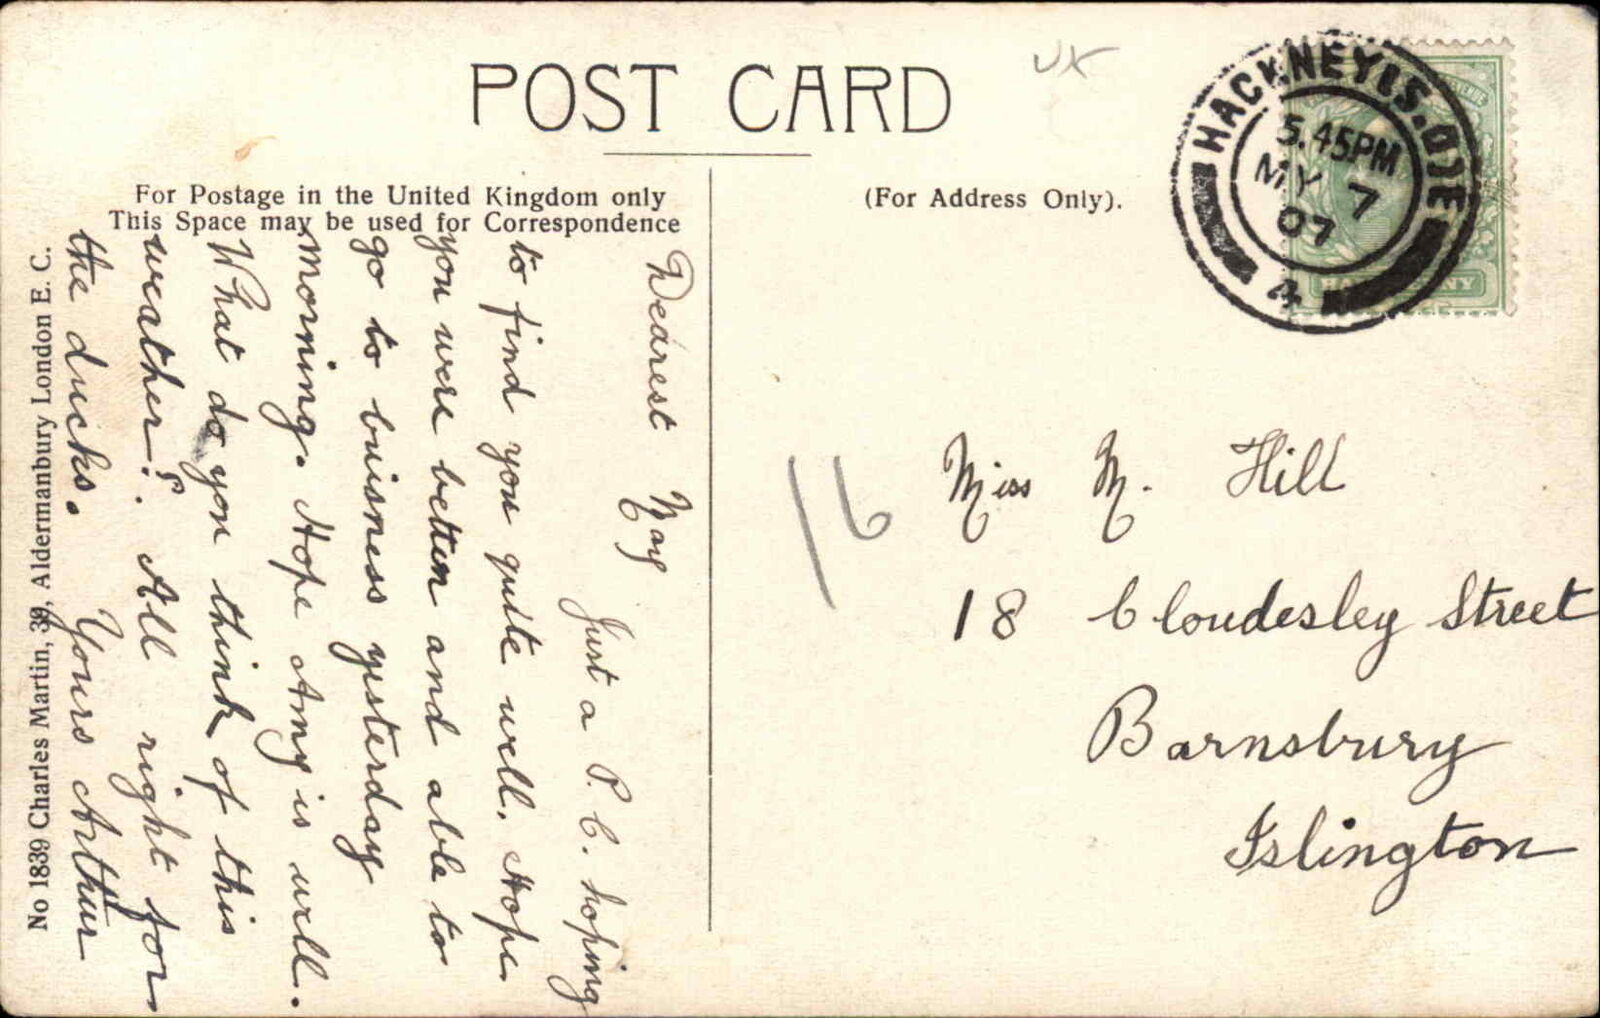 POST CARD
For Postage in the United Kingdom only
This Space may be used for Correspondence
(For Address Only).
HACKNEY B.S.O. N.E
5.45PM
MY 7
07
4
HALFPENNY
No 1839 Charles Martin, 39, Aldermanbury London E. C.
Dearest May
Just a P. C. hoping
to find you quite well. Hope
you were better and able to
go to buisness yesterday
morning. Hope Amy is well.
What do you think of this
weather? All right for
the ducks. Yours Arthur
16
Miss M. Hill
18 Cloudesley Street
Barnsbury
Islington